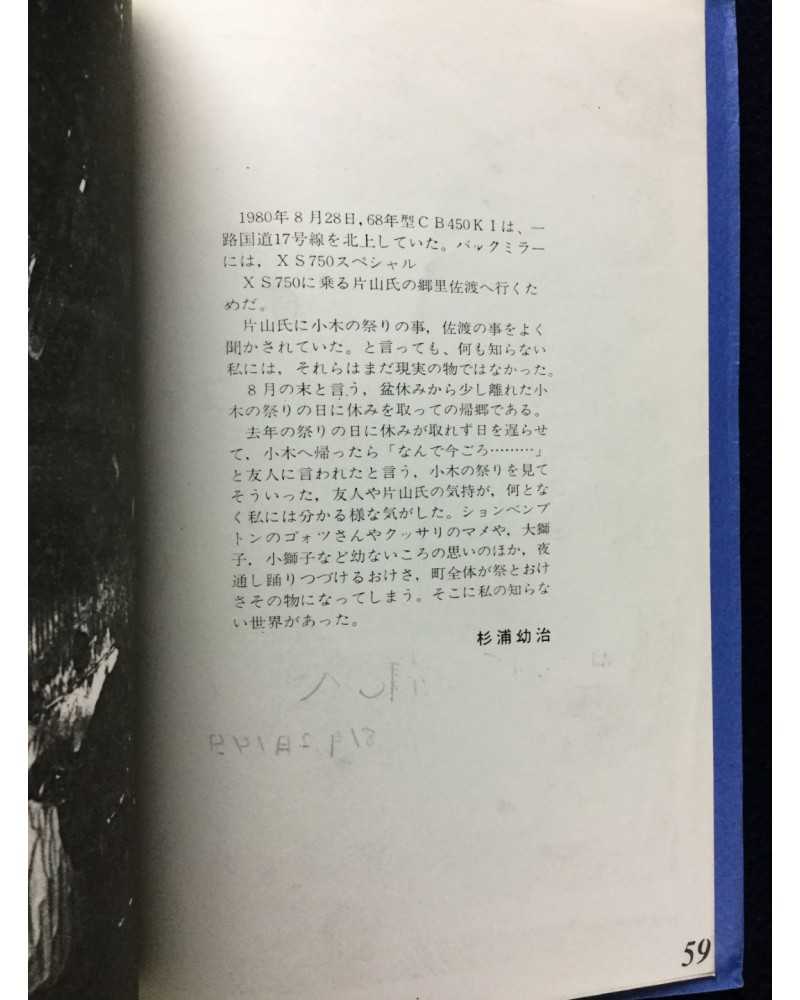 1980年8月28日，68年型ＣＢ450ＫＩは、一
路国道17号線を北上していた。バックミラー
には，ＸＳ750スペシャル
ＸＳ750に乗る片山氏の郷里佐渡へ行くた
めだ。
片山氏に小木の祭りの事，佐渡の事をよく
聞かされていた。と言っても、何も知らない
私には，それらはまだ現実の物ではなかった。
8月の末と言う，盆休みから少し離れた小
木の祭りの日に休みを取っての帰郷である。
去年の祭りの日に休みが取れず日を遅らせ
て，小木へ帰ったら「なんで今ごろ………」
と友人に言われたと言う，小木の祭りを見て
そういった，友人や片山氏の気持が，何とな
く私には分かる様な気がした。ションベンプ
トンのゴォツさんやクッサリのマメや，大獅
子，小獅子など幼ないころの思いのほか，夜
通し踊りつづけるおけさ，町全体が祭とおけ
さその物になってしまう。そこに私の知らな
い世界があった。
杉浦幼治
59